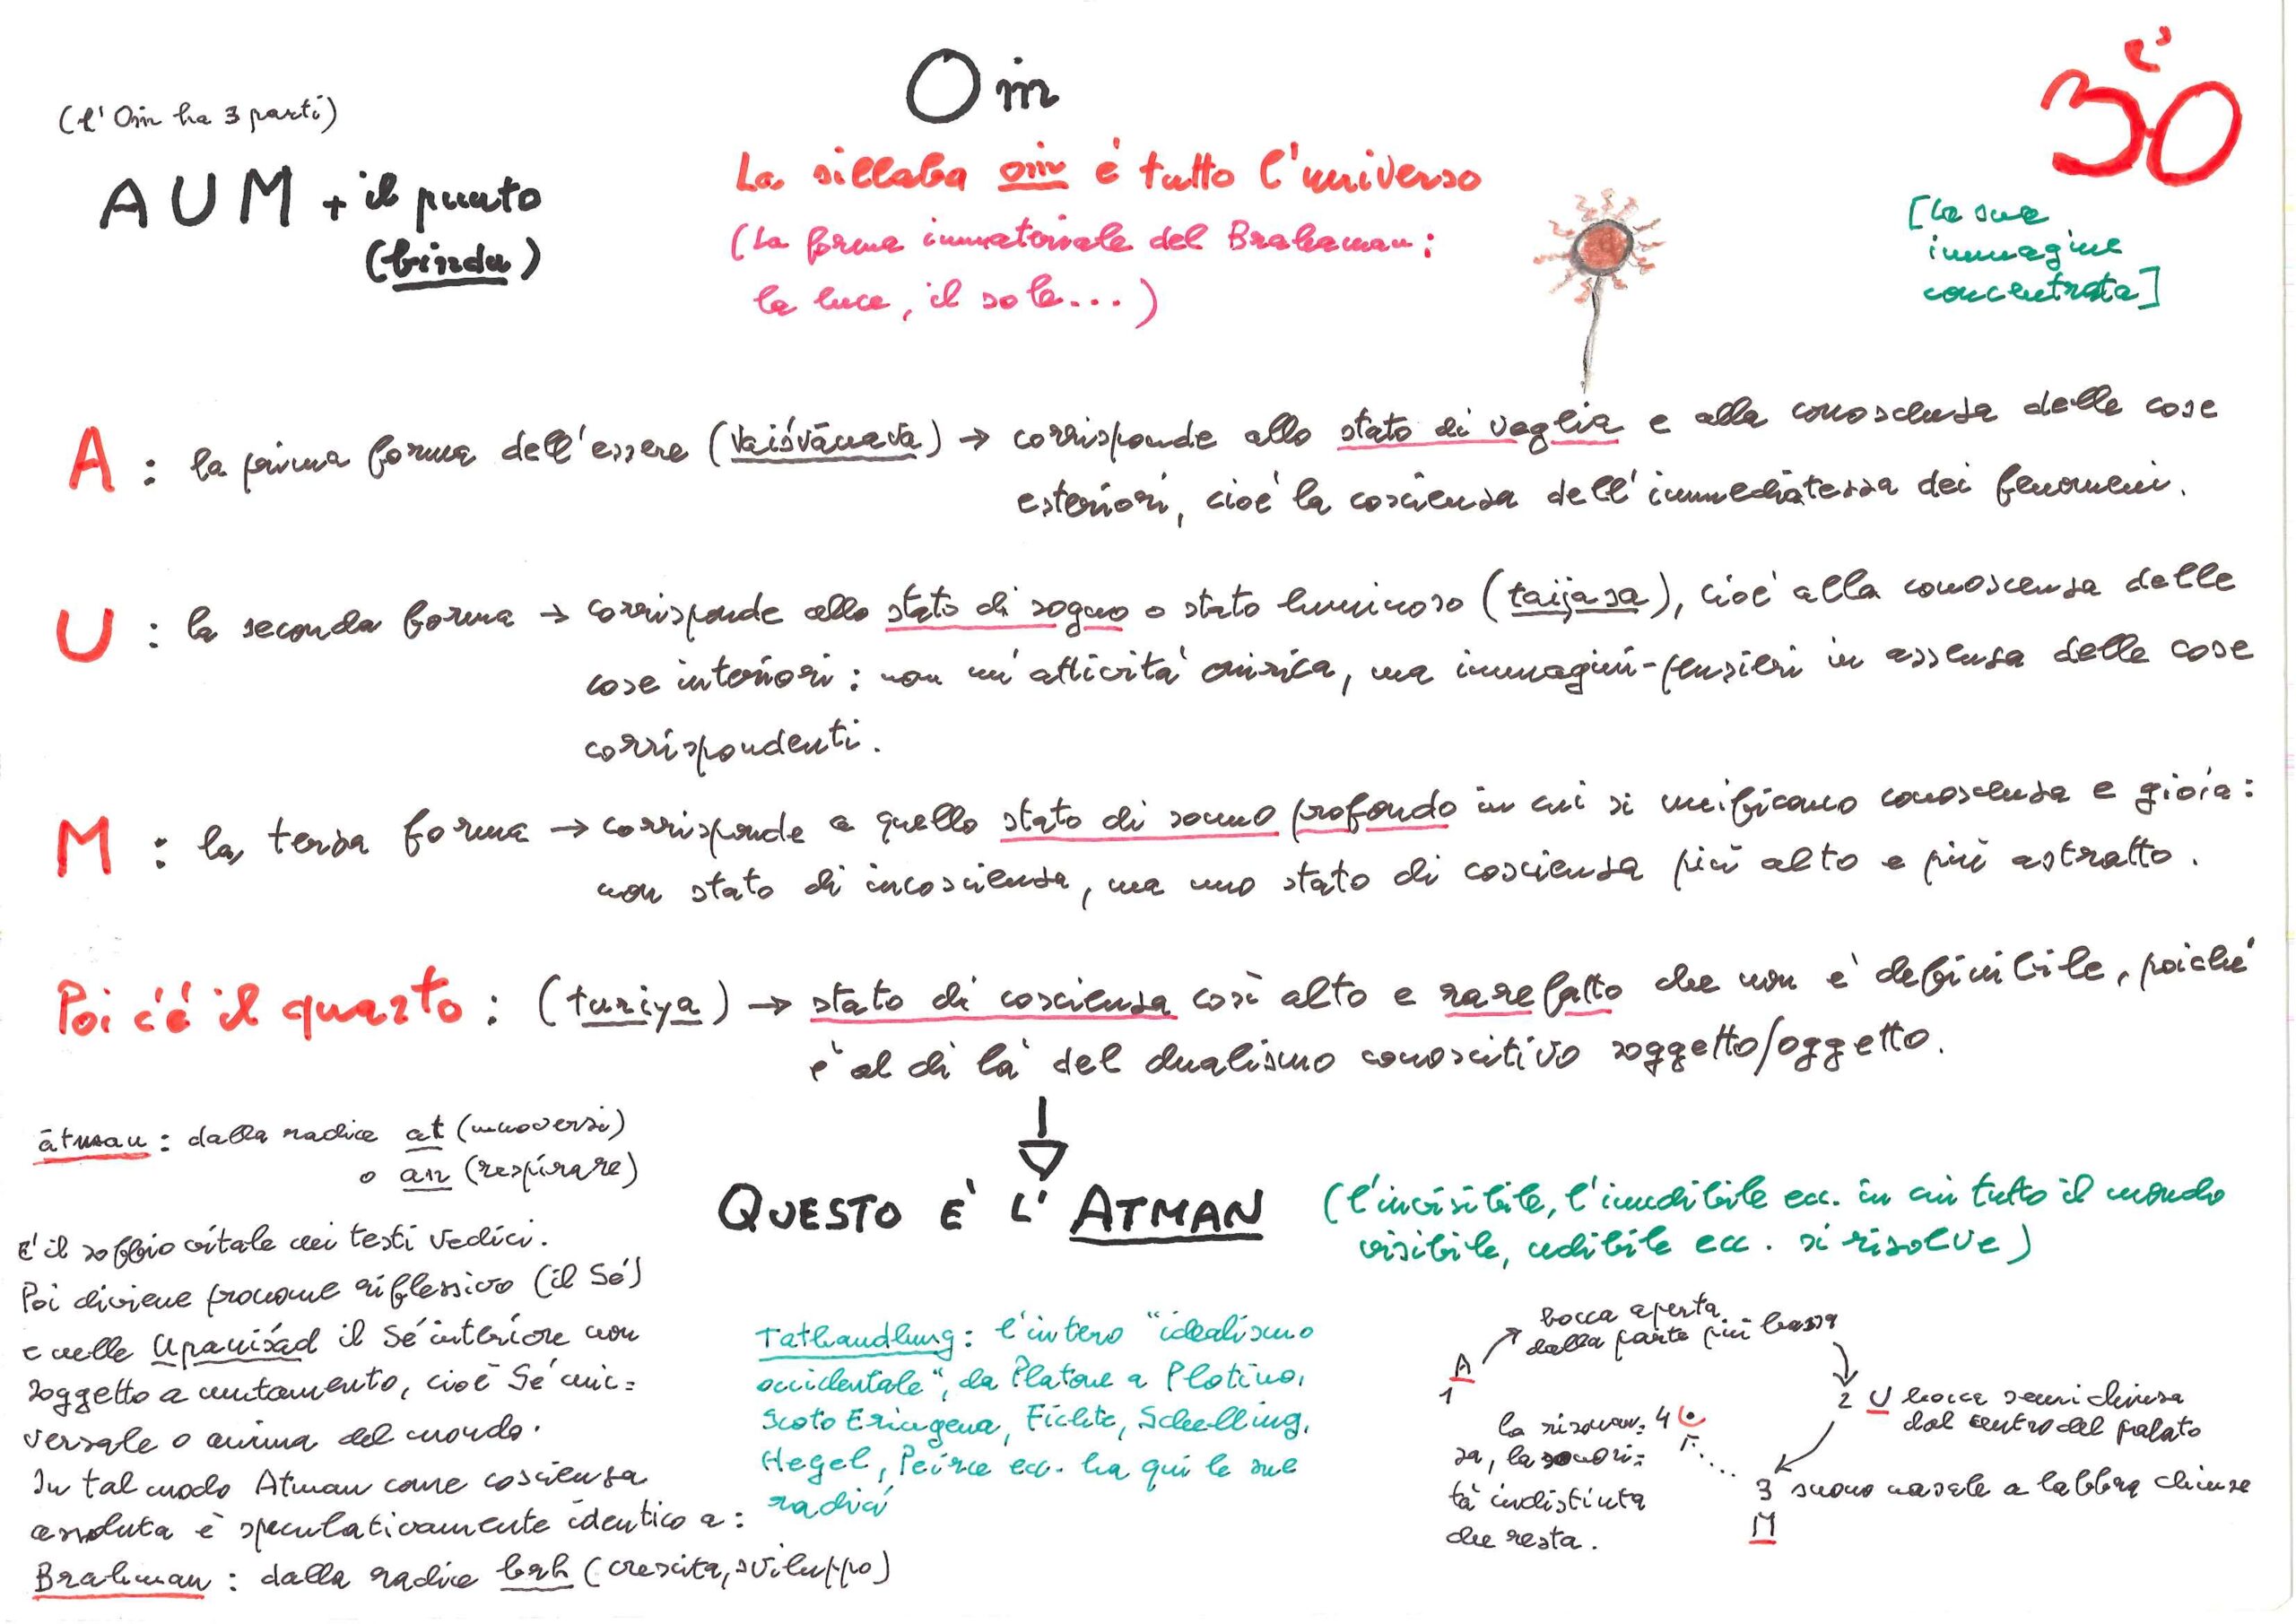 Oṁ
(l'Oṁ ha 3 parti)
AUM + il punto
(bindu)
La sillaba oṁ è tutto l'universo
(la forma immateriale del Brahaman:
la luce, il sole...)
[la sua
immagine
concentrata]
A : la prima forma dell'essere (Vaiśvānara) → corrisponde allo stato di veglia e alla conoscenza delle cose
esteriori, cioè la coscienza dell'immediatezza dei fenomeni.
U : la seconda forma → corrisponde allo stato di sogno o stato luminoso (taijasa), cioè alla conoscenza delle
cose interiori: non un'attività onirica, ma immagini-pensieri in assenza delle cose
corrispondenti.
M : la terza forma → corrisponde a quello stato di sonno profondo in cui si unificano conoscenza e gioia:
non stato di incoscienza, ma uno stato di coscienza più alto e più astratto.
Poi c'è il quarto : (turiya) → stato di coscienza così alto e rarefatto che non è definibile, poiché
è al di là del dualismo conoscitivo soggetto/oggetto.
QUESTO È L'ATMAN
(l'invisibile, l'inudibile ecc. in cui tutto il mondo
visibile, udibile ecc. si risolve)
ātman : dalla radice at (muoversi)
o an (respirare)
E' il soffio vitale nei testi vedici.
Poi diviene pronome riflessivo (il Sé)
e nelle Upaniśad il Sé interiore non
soggetto a mutamento, cioè Sé uni=
versale o anima del mondo.
In tal modo Atman come coscienza
assoluta è speculativamente identico a:
Brahman : dalla radice bṛh (crescita, sviluppo)
Tathandlung : l'intero "idealismo
occidentale", da Platone a Plotino,
Scoto Eriugena, Fichte, Schelling,
Hegel, Peirce ecc. ha qui le sue
radici
A
1
bocca aperta
dalla parte più bassa
2 U bocca semichiusa
dal centro del palato
3 suono nasale a labbra chiuse
M
4
la risonan=
za, la sonori=
tà indistinta
che resta.